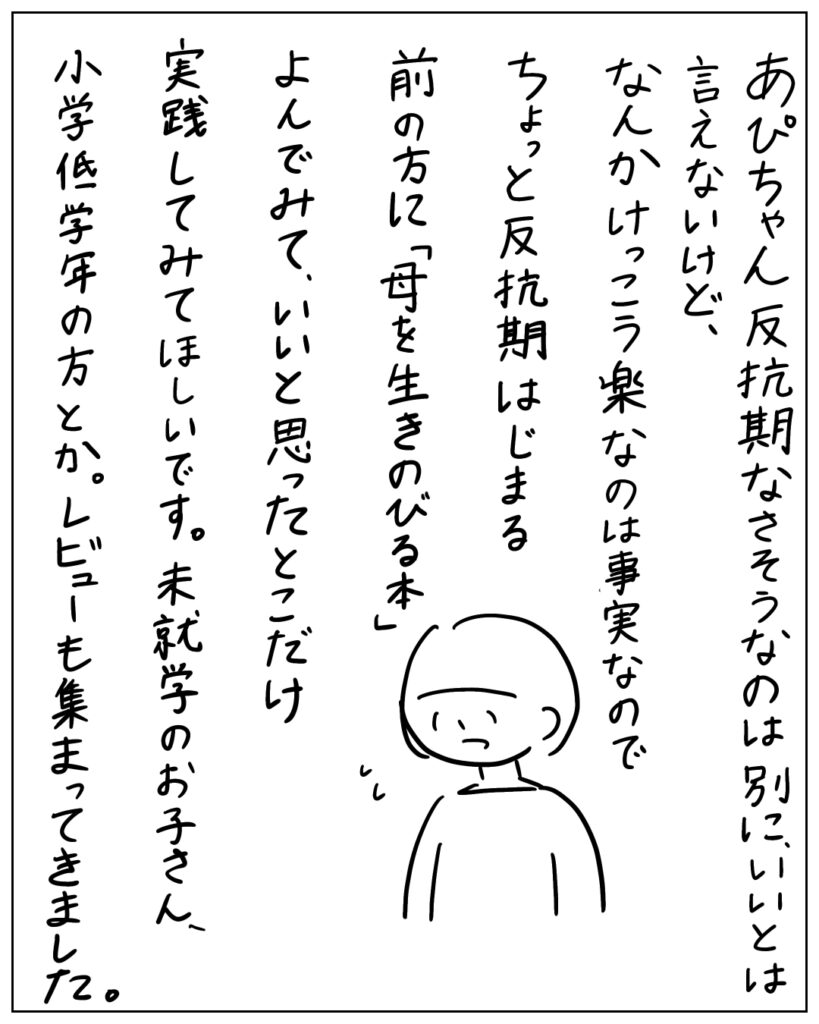 あぴちゃん反抗期なさそうなのは別に、いいとは
言えないけど、
なんかけっこう楽なのは事実なので
ちょっと反抗期はじまる
前の方に「母を生きのびる本」
よんでみて、いいと思ったとこだけ
実践してみてほしいです。未就学のお子さん、
小学低学年の方とか。レビューも集まってきました。